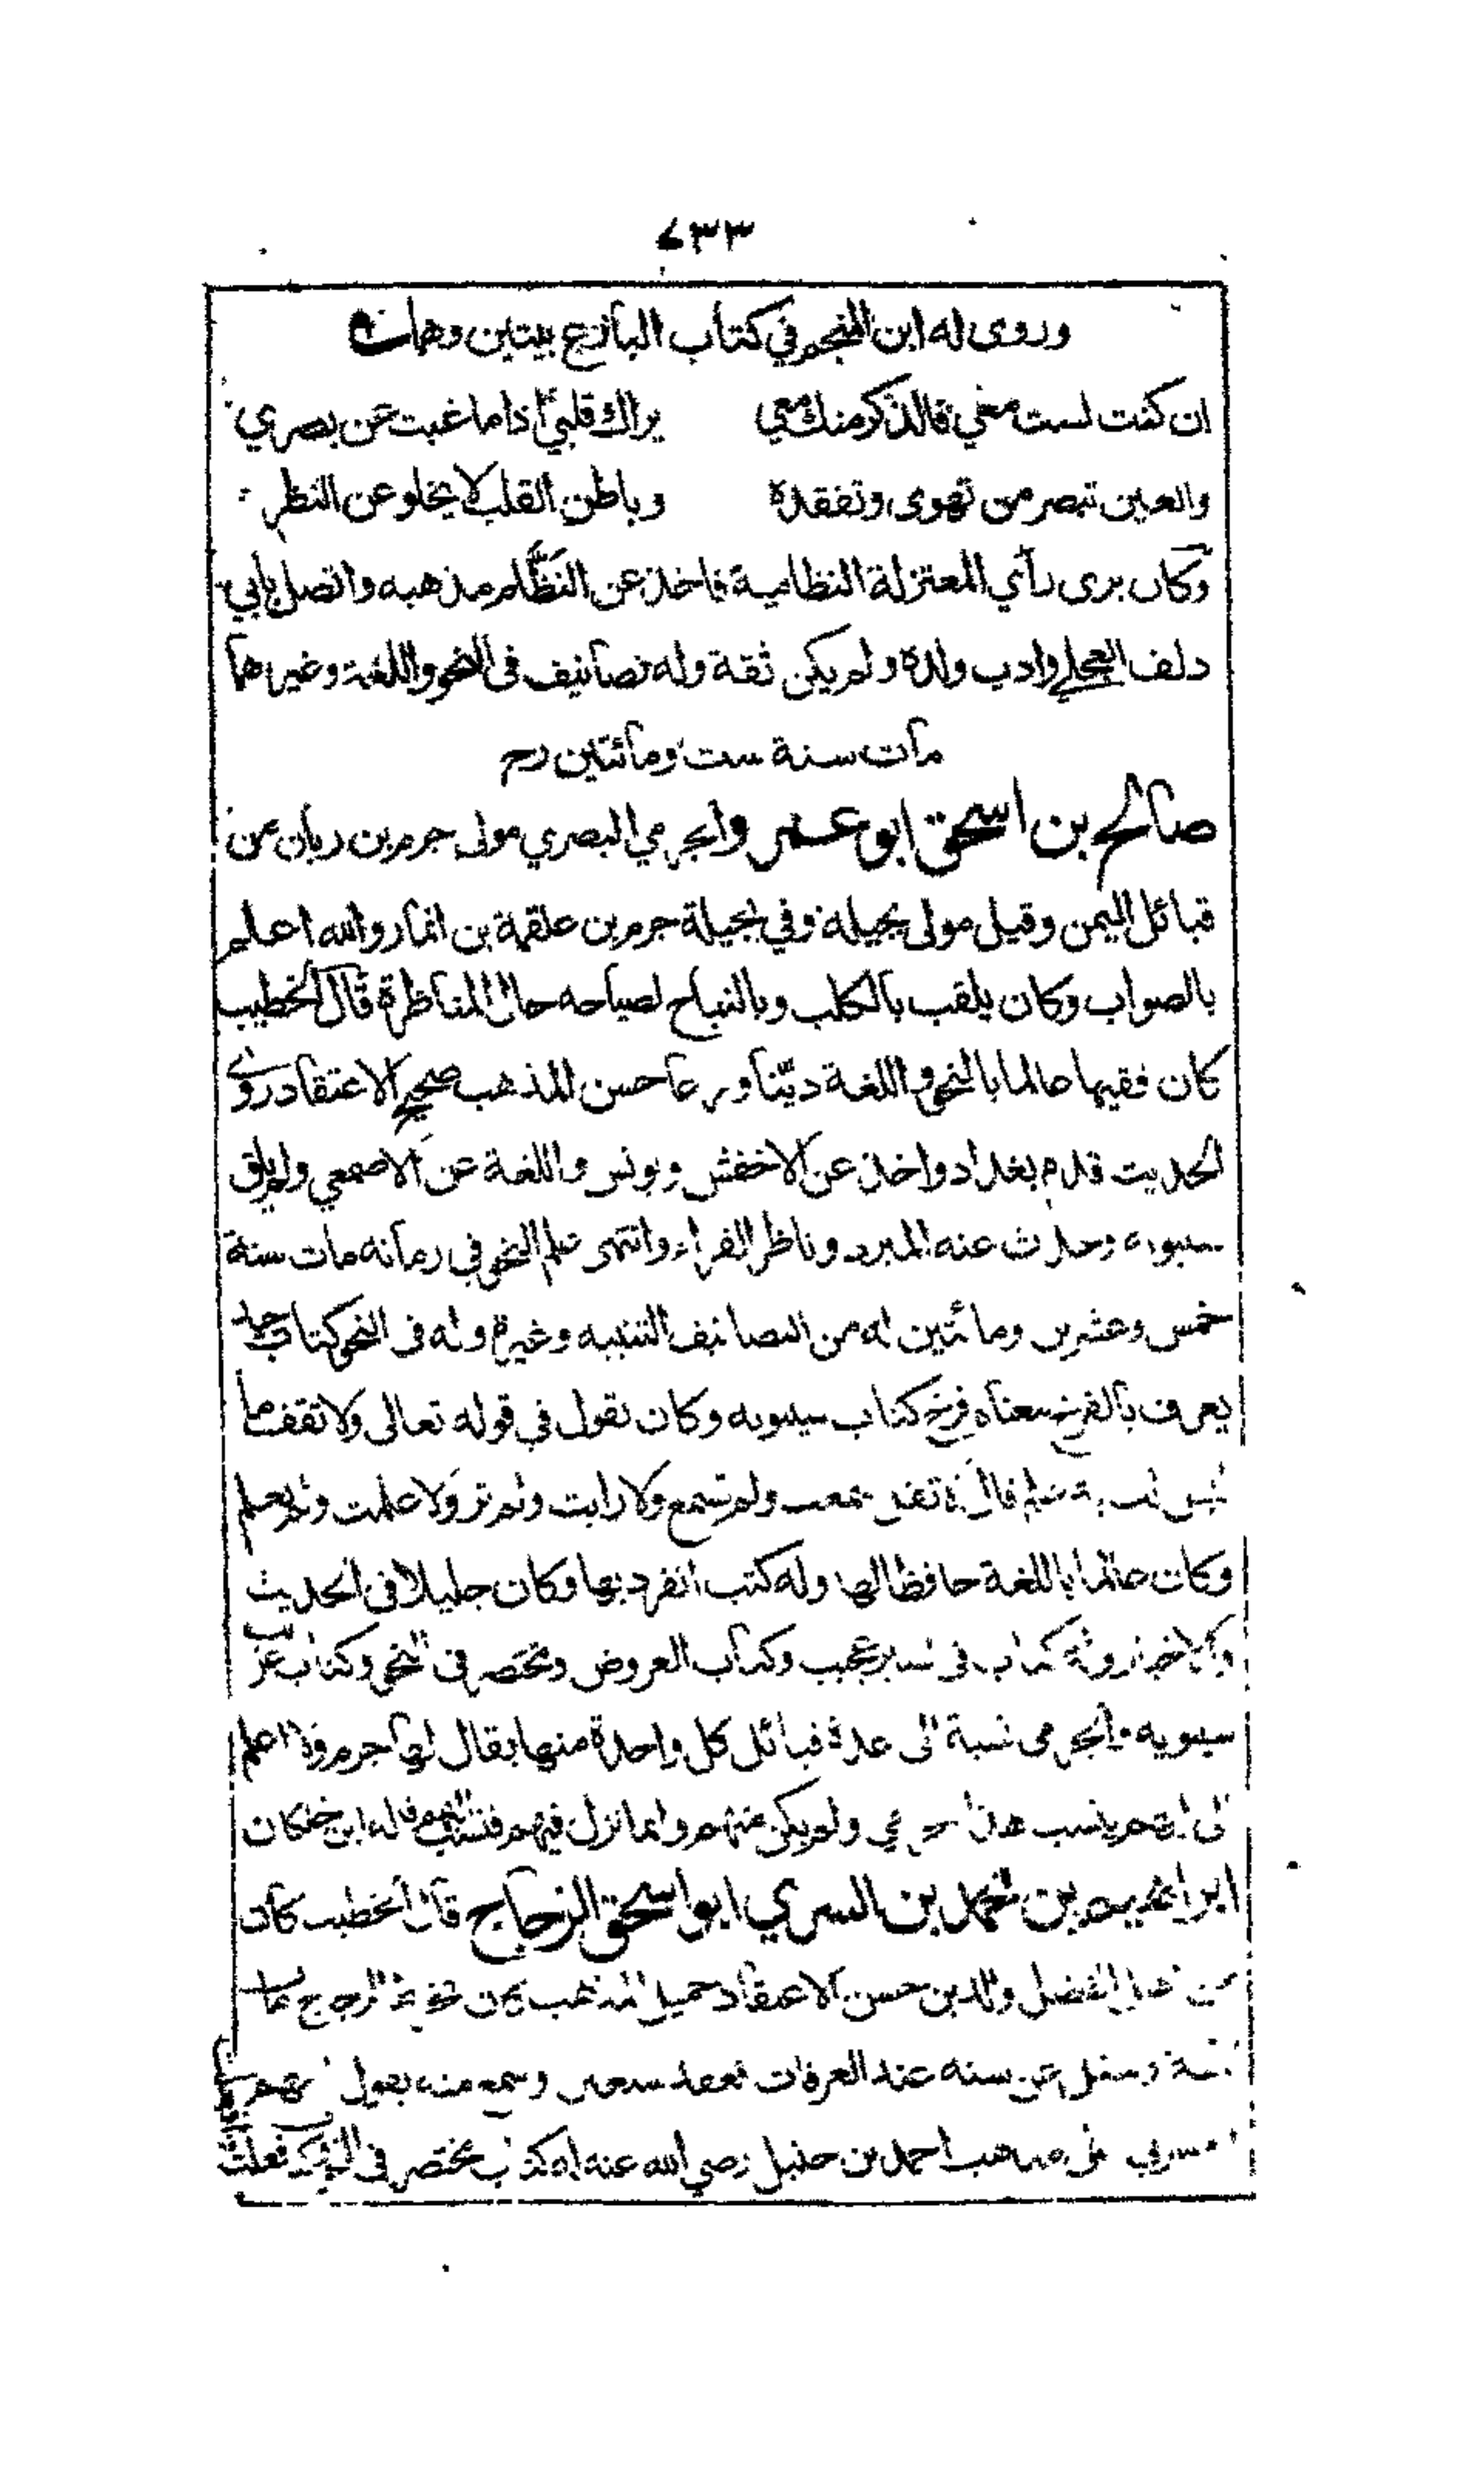 ٦٣٣
وروى له ابن المنجم في كتاب البارع بيتين وهما
ان كنت لست معي فالذكر منك معي يراك قلبي اذا ما غبت عن بصري
والعين تبصر من تهوى وتفقده وباطن القلب لا يخلو عن النظر
وكان يرى رأي المعتزلة النظامية فاخذ عن النَظَّام مذهبه واتصل بابي
دلف العجلي وادب ولده ولم يكن ثقة وله تصانيف فى النحو واللغة وغيرهما
مات سنة ست ومائتين رح
صالح بن اسحق ابو عمر والجرمي البصري مولى جرم بن ربان من
قبائل اليمن وقيل مولى بجيلة وفي بجيلة جرم بن علقمة بن انمار والله اعلم
بالصواب وكان يلقب بالكلب وبالنباح لصياحه حال المناظرة قال الخطيب
كان فقيها عالما بالنحو واللغة ديّنا ورعا حسن المذهب صحيح الاعتقاد روى
الحديث قدم بغداد واخذ عن الاخفش ويونس واللغة عن الاصمعي ولم يلق
سيبويه وحدث عنه المبرد وناظر الفراء وانتهى علم النحو في زمانه مات سنة
خمس وعشرين ومائتين له من التصانيف التنبيه وغيره وله فى النحو كتاب جيد
يعرف بالفرخ معناه فرخ كتاب سيبويه وكان يقول في قوله تعالى ولا تقف ما
ليس لك به علم قال لا تقل سمعت ولم تسمع ولا رايت ولم تر ولا علمت ولم تعلم
وكان عالما باللغة حافظا لها وله كتب انفرد بها وكان جليلا فى الحديث
والاخبار وله كتاب فى السير عجيب وكتاب العروض ومختصر فى النحو وكتاب غريب
سيبويه والجرمى نسبة الى عدة قبائل كل واحدة منها يقال لها جرم ولا اعلم
الى ايهم ينسب هذا الجرمي ولم يكن منهم وانما نزل فيهم فنسب اليهم قاله ابن خلكان
ابراهيم بن محمد بن السري ابو اسحق الزجاج قال الخطيب كان
من اهل الفضل والدين حسن الاعتقاد جميل المذهب كان
وسئل عن سنه عند الوفات فعقد سبعين وسمع منه يقول اللهم
احشرني على مذهب احمد بن حنبل رضي الله عنه له كتاب مختصر فى النحو فعلت